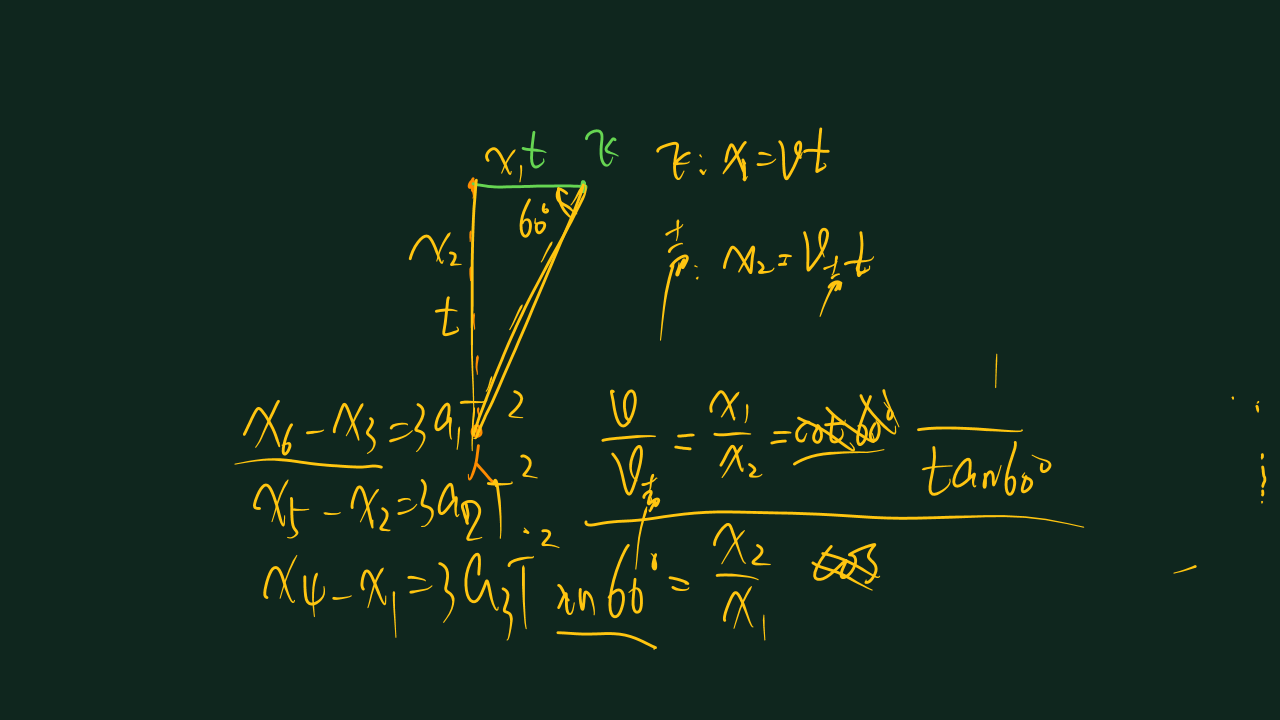 x₁ t
60°
x₂
t
飞: x₁=vt
声: x₂=V声t
x₆-x₃=3a₁T²
x₅-x₂=3a₂T²
x₄-x₁=3a₃T²
V/V声 = x₁/x₂ = 1/tan60°
60° = x₂/x₁